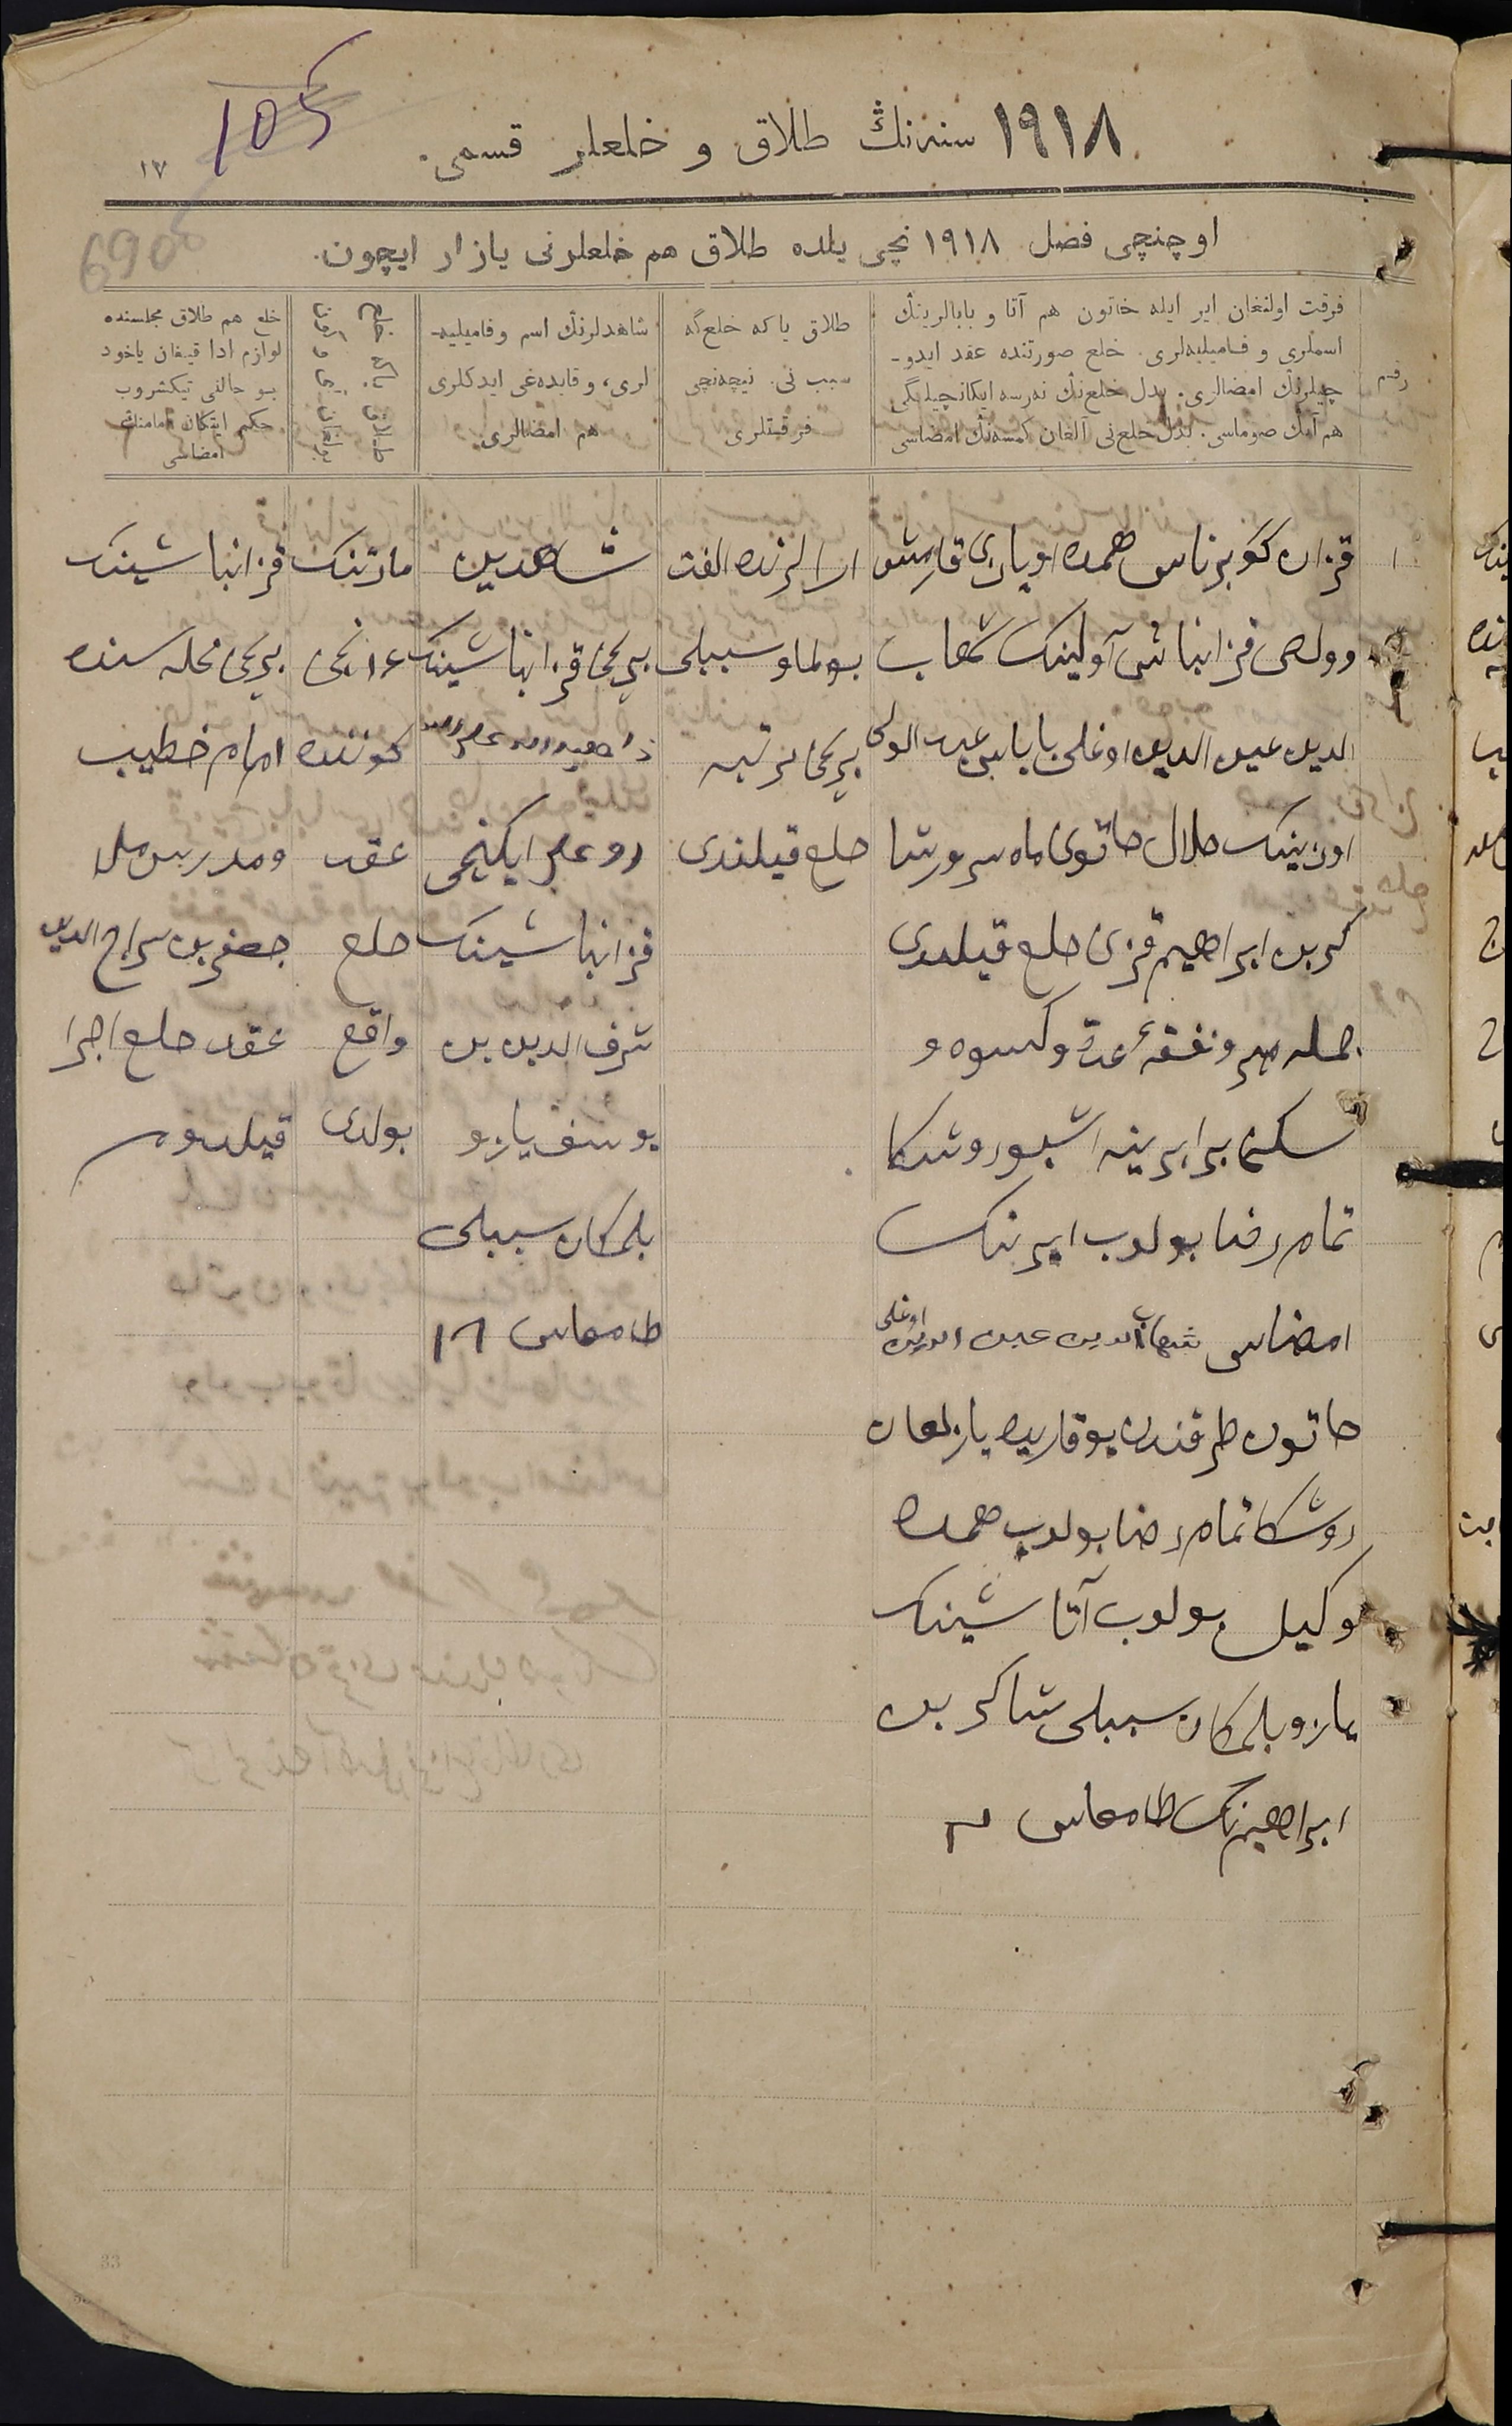 105
١٩١٨ سنه‌نڭ طلاق و خلعلر قسمی.
١٧
6906
اوچنچی فصل ١٩١٨ نچی یلده طلاق هم خلعلرنی یازار ایچون.
رقم
فرقت اولنغان ایر ایله خاتون هم آتا و بابالرینڭ
اسملری و فامیلیه‌لری. خلع صورتنده عقد ایدو-
چیلرنڭ امضالری. بدل خلع‌نڭ نه‌رسه ایکانچیلگی
هم آنڭ صوماسی. بدل خلع‌نی آلغان کمسه‌نڭ امضاسی
طلاق یا که خلع‌گه
سبب نی. نیچه‌نچی
فرقتلری
شاهدلرنڭ اسم وفامیلیه-
لری، و قایده‌غی ایدکلری
هم امضالری.
خلع هم طلاق مجلسنده
لوازم ادا قیلغان یاخود
بو حالنی تیکشروب
حکم ایتکان امامنڭ
امضاسی
١
قزان گوبرناس همده اویازی قاریشو
وولصی قزانباش آولینك شهاب
الدین عین الدین اوغلی باباسی عبد الولی
اوزینك حلال خاتونی ماه سرور شا
کر بن ابراهیم قزی خلع قیلدی
جمله مهر و نفقهٔ عدة وکسوه و
سکنی برابرینه اشبو روشکا
تمام رضا بولوب ایرنك
امضاسی شهاب الدین عین الدین اوغلی
خاتون طرفندن یوقاریده یازلغان
روشکا تمام رضا بولوب همده
وکیل بولوب آتاشینك
یازو بلمکان سببلی شاکر بن
ابراهیم نك طامغاسی
ارالرنده الفت
بولماو سببلی
برنجی مرتبه
خلع قیلندی
شاهدین
برنجی قزانباشینك
ایکنچی
قزانباشینك
شرف الدین بن
یوسف یازو
بلمکان سببلی
طامغاسی
مارتنك
١٤ نچی
کوننده
عقد
خلع
واقع
بولدی
قزانباشینك
برنجی محله سنده
امام خطیب
ومدرس ملا
جعفر بن سراج الدین
عقد خلع اجرا
قیلدوم
33